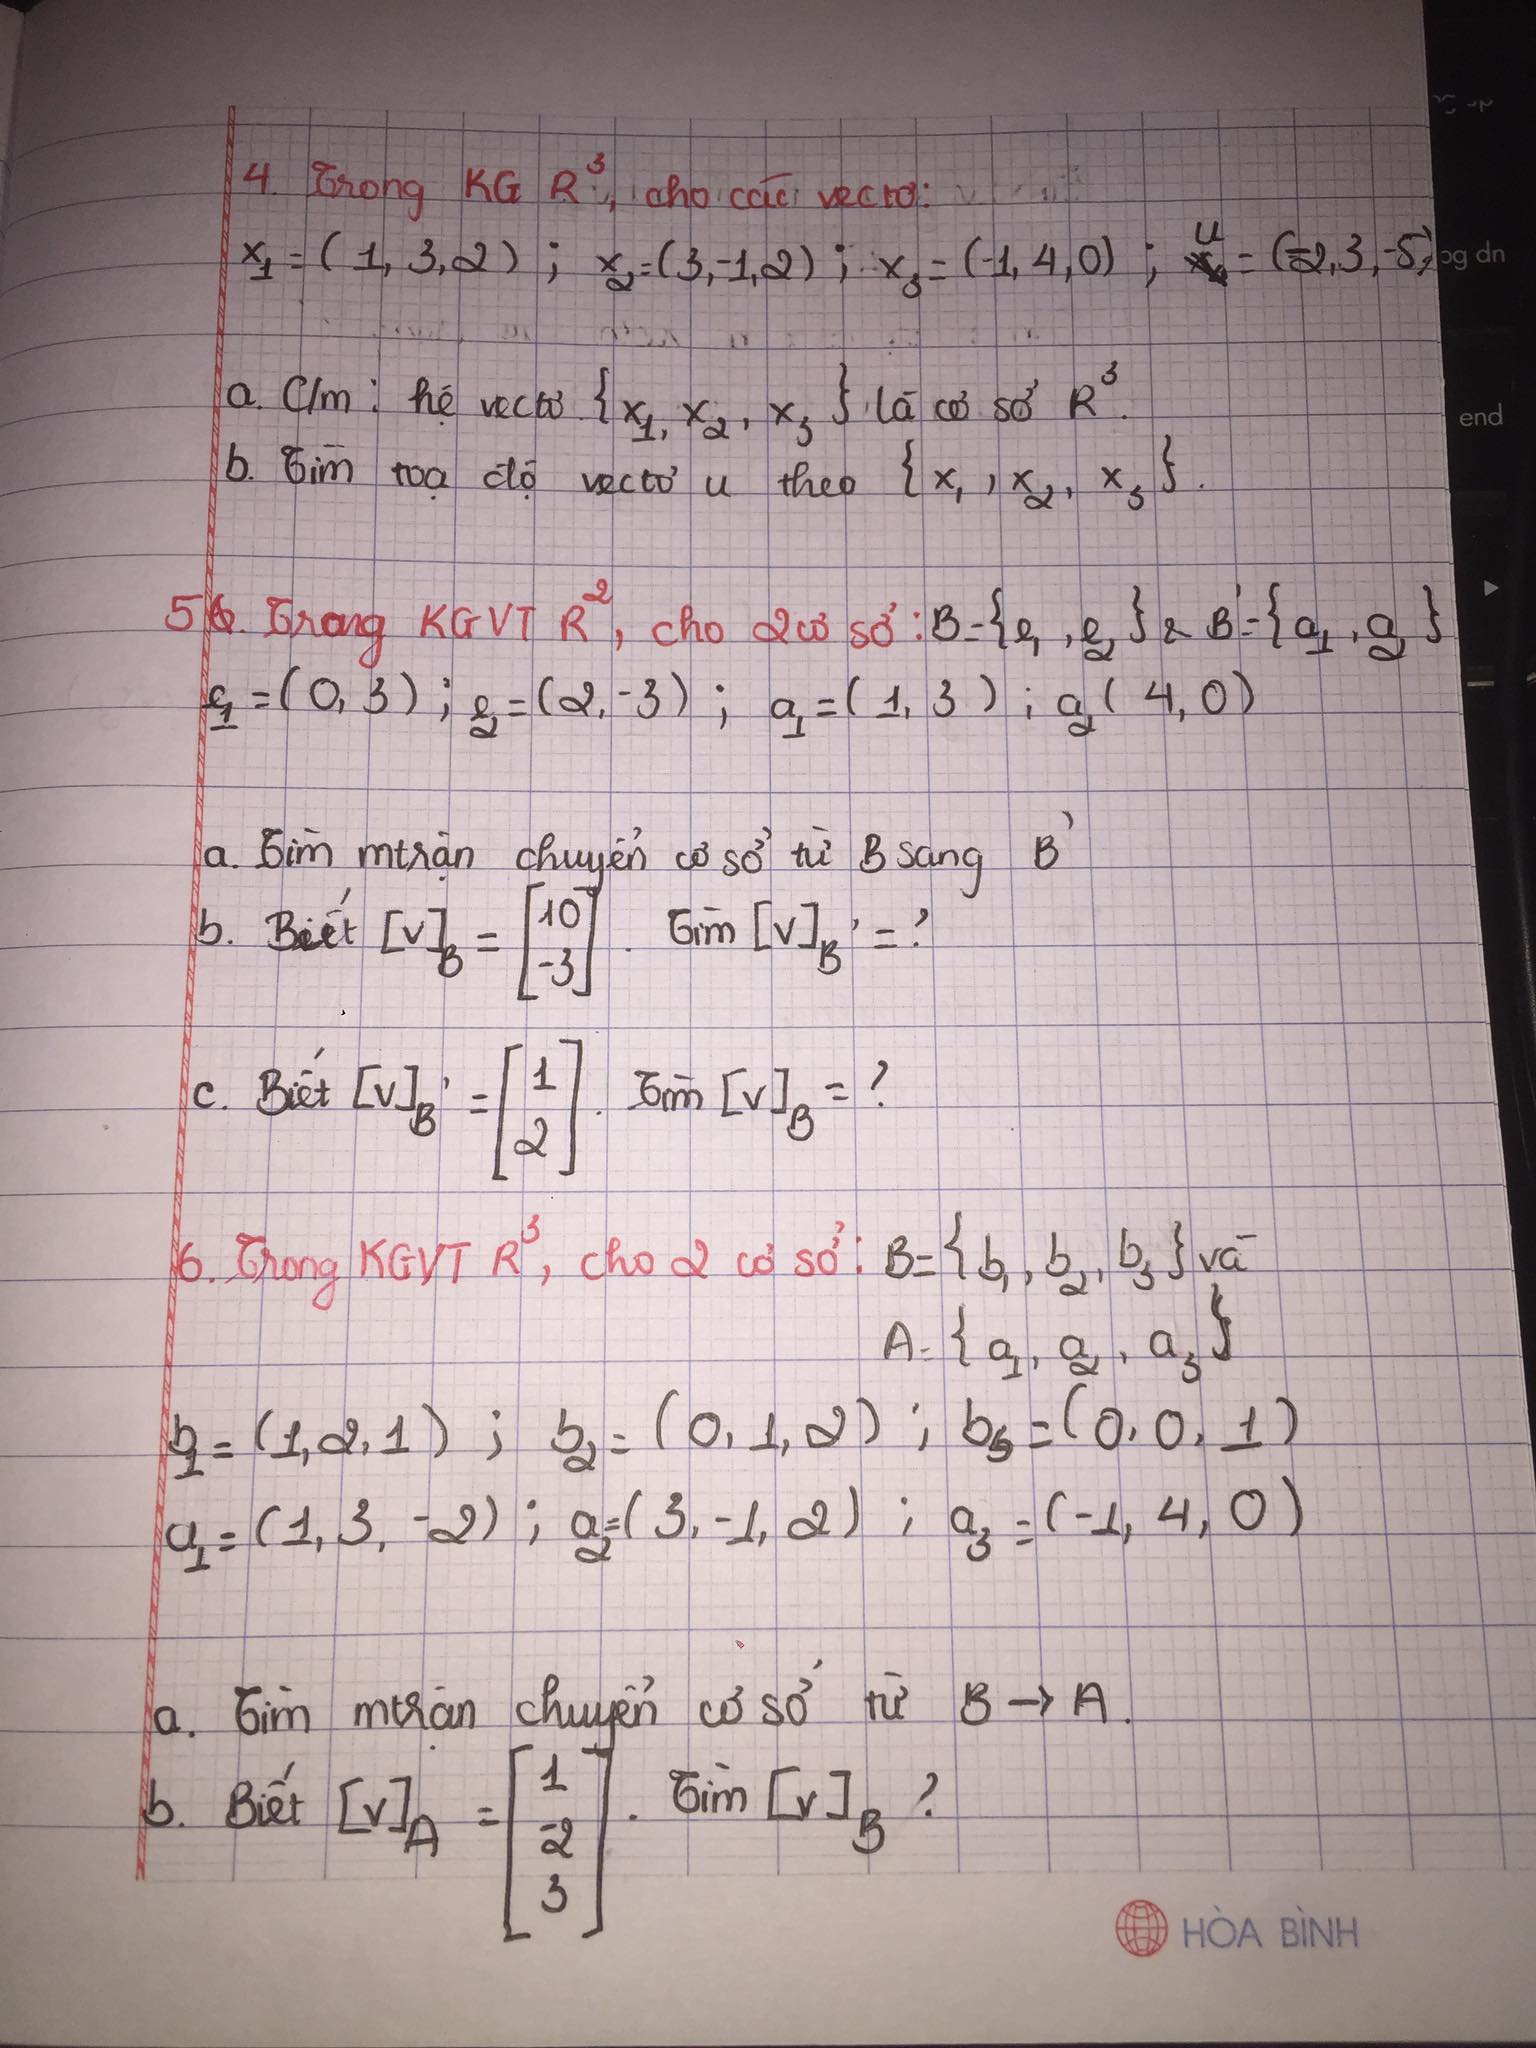 4. Trong KG R³, cho các vectơ:
x₁ = (1, 3, 2) ; x₂ = (3, -1, 2) ; x₃ = (-1, 4, 0) ; u = (-2, 3, -5)
pg dn
a. C/m : hệ vectơ {x₁, x₂, x₃} là cơ sở R³.
end
b. Tìm toạ độ vectơ u theo {x₁, x₂, x₃}.
5. Trong KGVT R², cho 2 cơ sở: B = {e₁, e₂} & B' = {a₁, a₂}
e₁ = (0, 3) ; e₂ = (2, -3) ; a₁ = (1, 3) ; a₂ (4, 0)
a. Tìm mtrận chuyển cơ sở từ B sang B'
b. Biết [v]_B = [10 -3] . Tìm [v]_B' = ?
c. Biết [v]_B' = [1 2] . Tìm [v]_B = ?
6. Trong KGVT R³, cho 2 cơ sở: B = {b₁, b₂, b₃} và
A = {a₁, a₂, a₃}
b₁ = (1, 2, 1) ; b₂ = (0, 1, 2) ; b₃ = (0, 0, 1)
a₁ = (1, 3, -2) ; a₂ = (3, -1, 2) ; a₃ = (-1, 4, 0)
a. Tìm mtrận chuyển cơ số từ B → A.
b. Biết [v]_A = [1 -2 3] . Tìm [v]_B ?
HÒA BÌNH